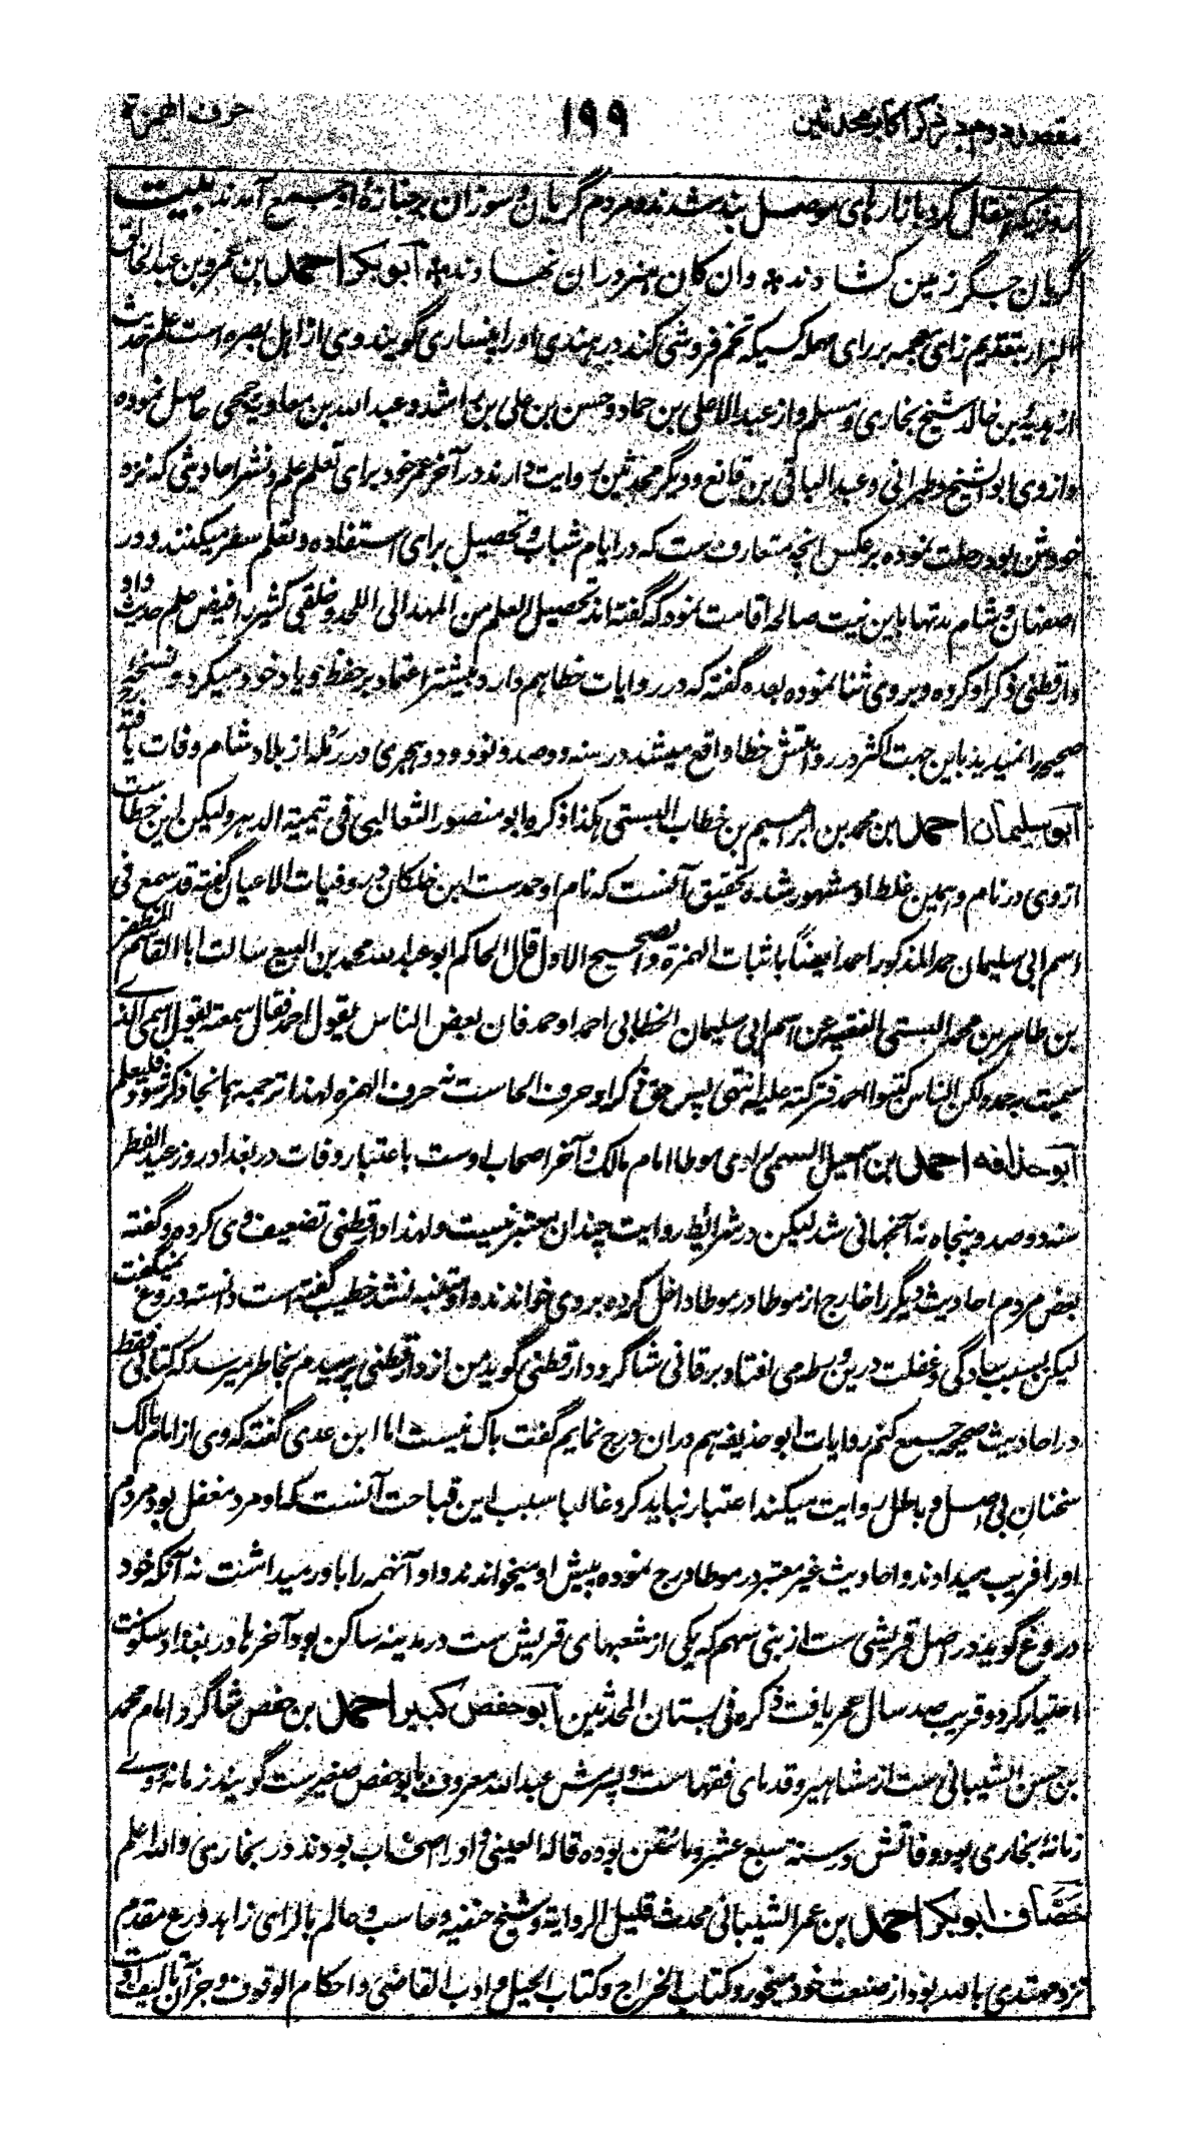 مقصد دوم در ذکر اکابر محدثین ۱۹۹ حرف الهمزة
روزیکه انتقال کرد بازارهای موصل بند شدند و مردم گریان و سوزان بر جنازهٔ او جمع آمدند بیت
گریان جگر زمین کشادند * وان کان هنر دران نهادند * ابو بکر احمد بن عمرو بن عبد الخالق
البزار بتقدیم زای معجمه بر رای مهمله کسیکه تخم فروشی کند در هندی او را پنساری گویند وی از اهل بصره است علم حدیث
از هدبه بن خالد شیخ بخاری و مسلم و از عبد الاعلی بن حماد و حسن بن علی بن راشد و عبد الله بن معاویه جمحی حاصل نموده
و از وی ابو الشیخ و طبرانی و عبد الباقی بن قانع و دیگر محدثین روایت دارند در آخر عمر خود برای تعلم علم و نشر احادیثی که نزد
خودش بود رحلت نموده بر عکس آنچه متعارف ست که در ایام شباب و تحصیل برای استفاده و تعلم سفر میکنند و در
اصفهان و شام مدتها باین نیت صالحه اقامت نمود که گفته اند تحصیل العلم من المهد الی اللحد و خلقی کثیر را فیض علم حدیث داد
دارقطنی ذکر او کرده و بر وی ثنا نموده بعده گفته که در روایات خطا هم دارد بیشتر اعتماد بر حفظ و یاد خود میکرد و نسخهٔ
صحیحه را نمیدید باین جهت اکثر در روایتش خطا واقع میشد در سنه دو صد و نود و دو هجری در رمله از بلاد شام وفات یافته
ابو سلیمان احمد بن محمد بن ابراهیم بن خطاب البستی هکذا ذکره ابو منصور الثعالبی فی یتیمة الدهر ولیکن این خطاست
از وی در نام و همین غلط او مشهور شده تحقیق آنست که نام او حمدست ابن خلکان در وفیات الاعیان گفته قد سمع فی
اسم ابی سلیمان حمد المذکور احمد ایضاً باثبات الهمزة والصحیح الاول قال الحاکم ابو عبد الله محمد بن البیع سالت ابا القاسم المظفر
بن طاهر بن محمد البستی الفقیه عن اسم ابی سلیمان الخطابی احمد او حمد فان بعض الناس یقول احمد فقال سمعته یقول اسمی الذی
سمیت به حمد ولکن الناس کتبوا احمد فترکته علیه انتهی پس حق ذکر او حرف الحاست نه حرف الهمزه لهذا ترجمه همانجا ذکر شود فلیعلم
ابو حذافه احمد بن اسمعیل السهمی راوی موطا امام مالک و آخر اصحاب اوست باعتبار وفات در بغداد روز عید الفطر
سنه دو صد و پنجاه نه آنجهانی شد لیکن در شرائط روایت چندان معتبر نیست و لهذا دارقطنی تضعیف وی کرده و گفته
بعض مردم احادیث دیگر را خارج از موطا در موطا داخل کرده بر وی خواندند و او متنبه نشد خطیب گفته است دانسته دروغ نمیگفت
لیکن بسبب سادگی و غفلت درین ورطه می افتاد برقانی شاگرد دارقطنی گوید من از دارقطنی پرسیدم بخاطر میرسد که کتابی فقط
در احادیث صحیحه جمع کنم روایات ابو حذیفه هم دران درج نمایم گفت باک نیست اما ابن عدی گفته که وی از امام مالک
سخنان بی اصل و باطل روایت میکند اعتبار نباید کرد غالبا سبب این قباحت آنست که او مرد مغفل بود مردم
او را فریب میدادند و احادیث غیر معتبر در موطا درج نموده پیش او میخواندند و او آنهمه را باور میداشت نه آنکه خود
دروغ گوید در اصل قریشی ست از بنی سهم که یکی از شعبهای قریش ست در مدینه ساکن بود آخرها در بغداد سکونت
اختیار کرد و قریب صد سال عمر یافت ذکره فی بستان المحدثین ابو حفص کبیر احمد بن حفص شاگرد امام محمد
بن حسن الشیبانی ست از مشاهیر و قدمای فقهاست و پسرش عبد الله معروف بابو حفص صغیرست گویند زمانه وی
زمانهٔ بخاری بود وفاتش در سنة سبع عشر و مائتین بوده قاله العینی و او را اصحاب بودند در بخاری والله اعلم
خصاف ابو بکر احمد بن عمر الشیبانی محدث قلیل الروایة و شیخ حنفیه و حاسب و عالم بالرای زاهد ورع مقدم
نزد مهتدی بالله بود از صنعت خود میخورد و کتاب الخراج و کتاب الحیل و ادب القاضی و احکام الوقوف و جز آن تالیف اوست